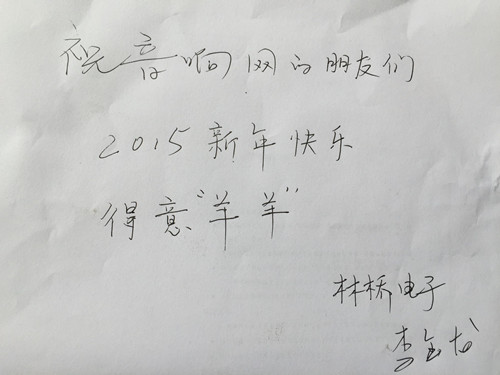 祝音响网的朋友们
2015新年快乐
得意“羊羊”
林桥电子
李金